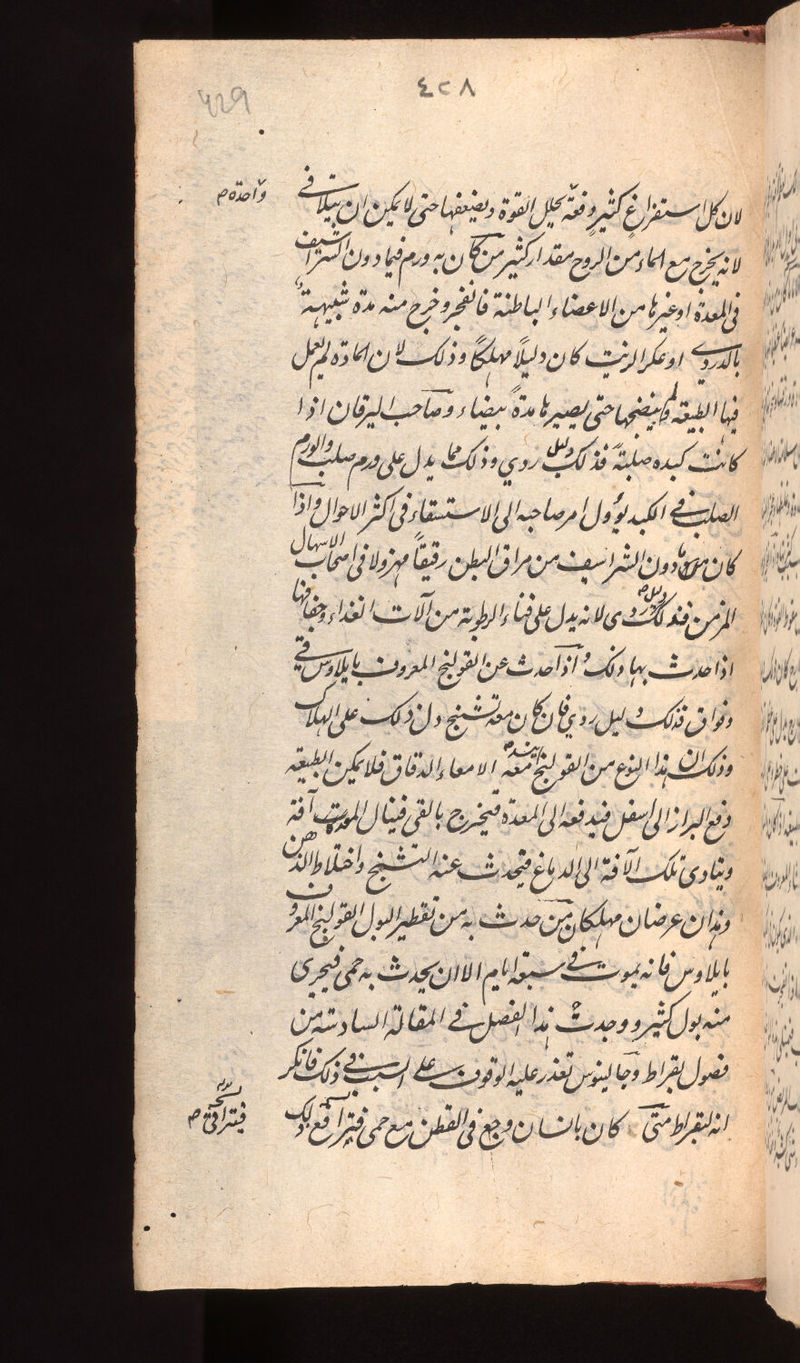 ٤٢٨
429
لان كل استفراغ كثير دفعة يحلل القوة ويضعفها حتى لا يمكن ان يتلافى
واحدة صح
لانه يخرج مع الماء من الروح مقدار كثير من كان به ورم فيما دون الشراسيف
فى المعدة او غيرها من الاعضاء الباطنة فانفجر وخرج منه مدة شبيهة
بالدردى او عكر الزيت كان دليلاً مهلكاً وذلك لان المادة لم تعمل
فيها الطبيعة ولم ينضجها حتى يصيرها مدة بيضاء وصاحب اليرقان اذا
كانت كبده صلبة فذلك دليل ردي وذلك مما يدل على ورم صلب والورم
الصلب فى الكبد يؤول امر صاحبه الى الاستسقاء فى اكثر الاحوال واذا
كان ما دون الشراسيف من مراق البطن رقيقاً مهزولا فى اصحاب الاسهال
المزمن فذلك دليل ردى لانه يدل على فناء الرطوبة من آلات الغذاء وجفافها
اذا حدث بها ذلك واذا حدث عن القولنج المعروف بايلاوس قئ
وفواق فذلك دليل ردي فان كان معه تشنج دل ذلك على الهلاك
وذلك ان هذا النوع من القولنج معه الامعاء الدقاق فلا يمكن الطبيعة
دفع البراز الى اسفل فيدفعه الى المعدة فيخرج بالقى فينال المعدة آفة
ويتادى تلك الآفة الى الدماغ فيحدث عنه التشنج واختلاط الذهن
وهذان عرضان مهلكان من حدث به من تقطير البول القولنج المعروف
بايلاوس فانه يموت فى سبعة ايام الا ان يحدث به حمى فيجرى
منه بول كثير ووجدت هذا الفصل فى المقالة السادسة من
فصول بقراط وجالينوس تعذر عليه الوقوف على السبب فى ذلك فانكر
انه لبقراط متى كان بانسان وجع فى القطن مع حمى فتراقى ذلك
فيتراقى صح